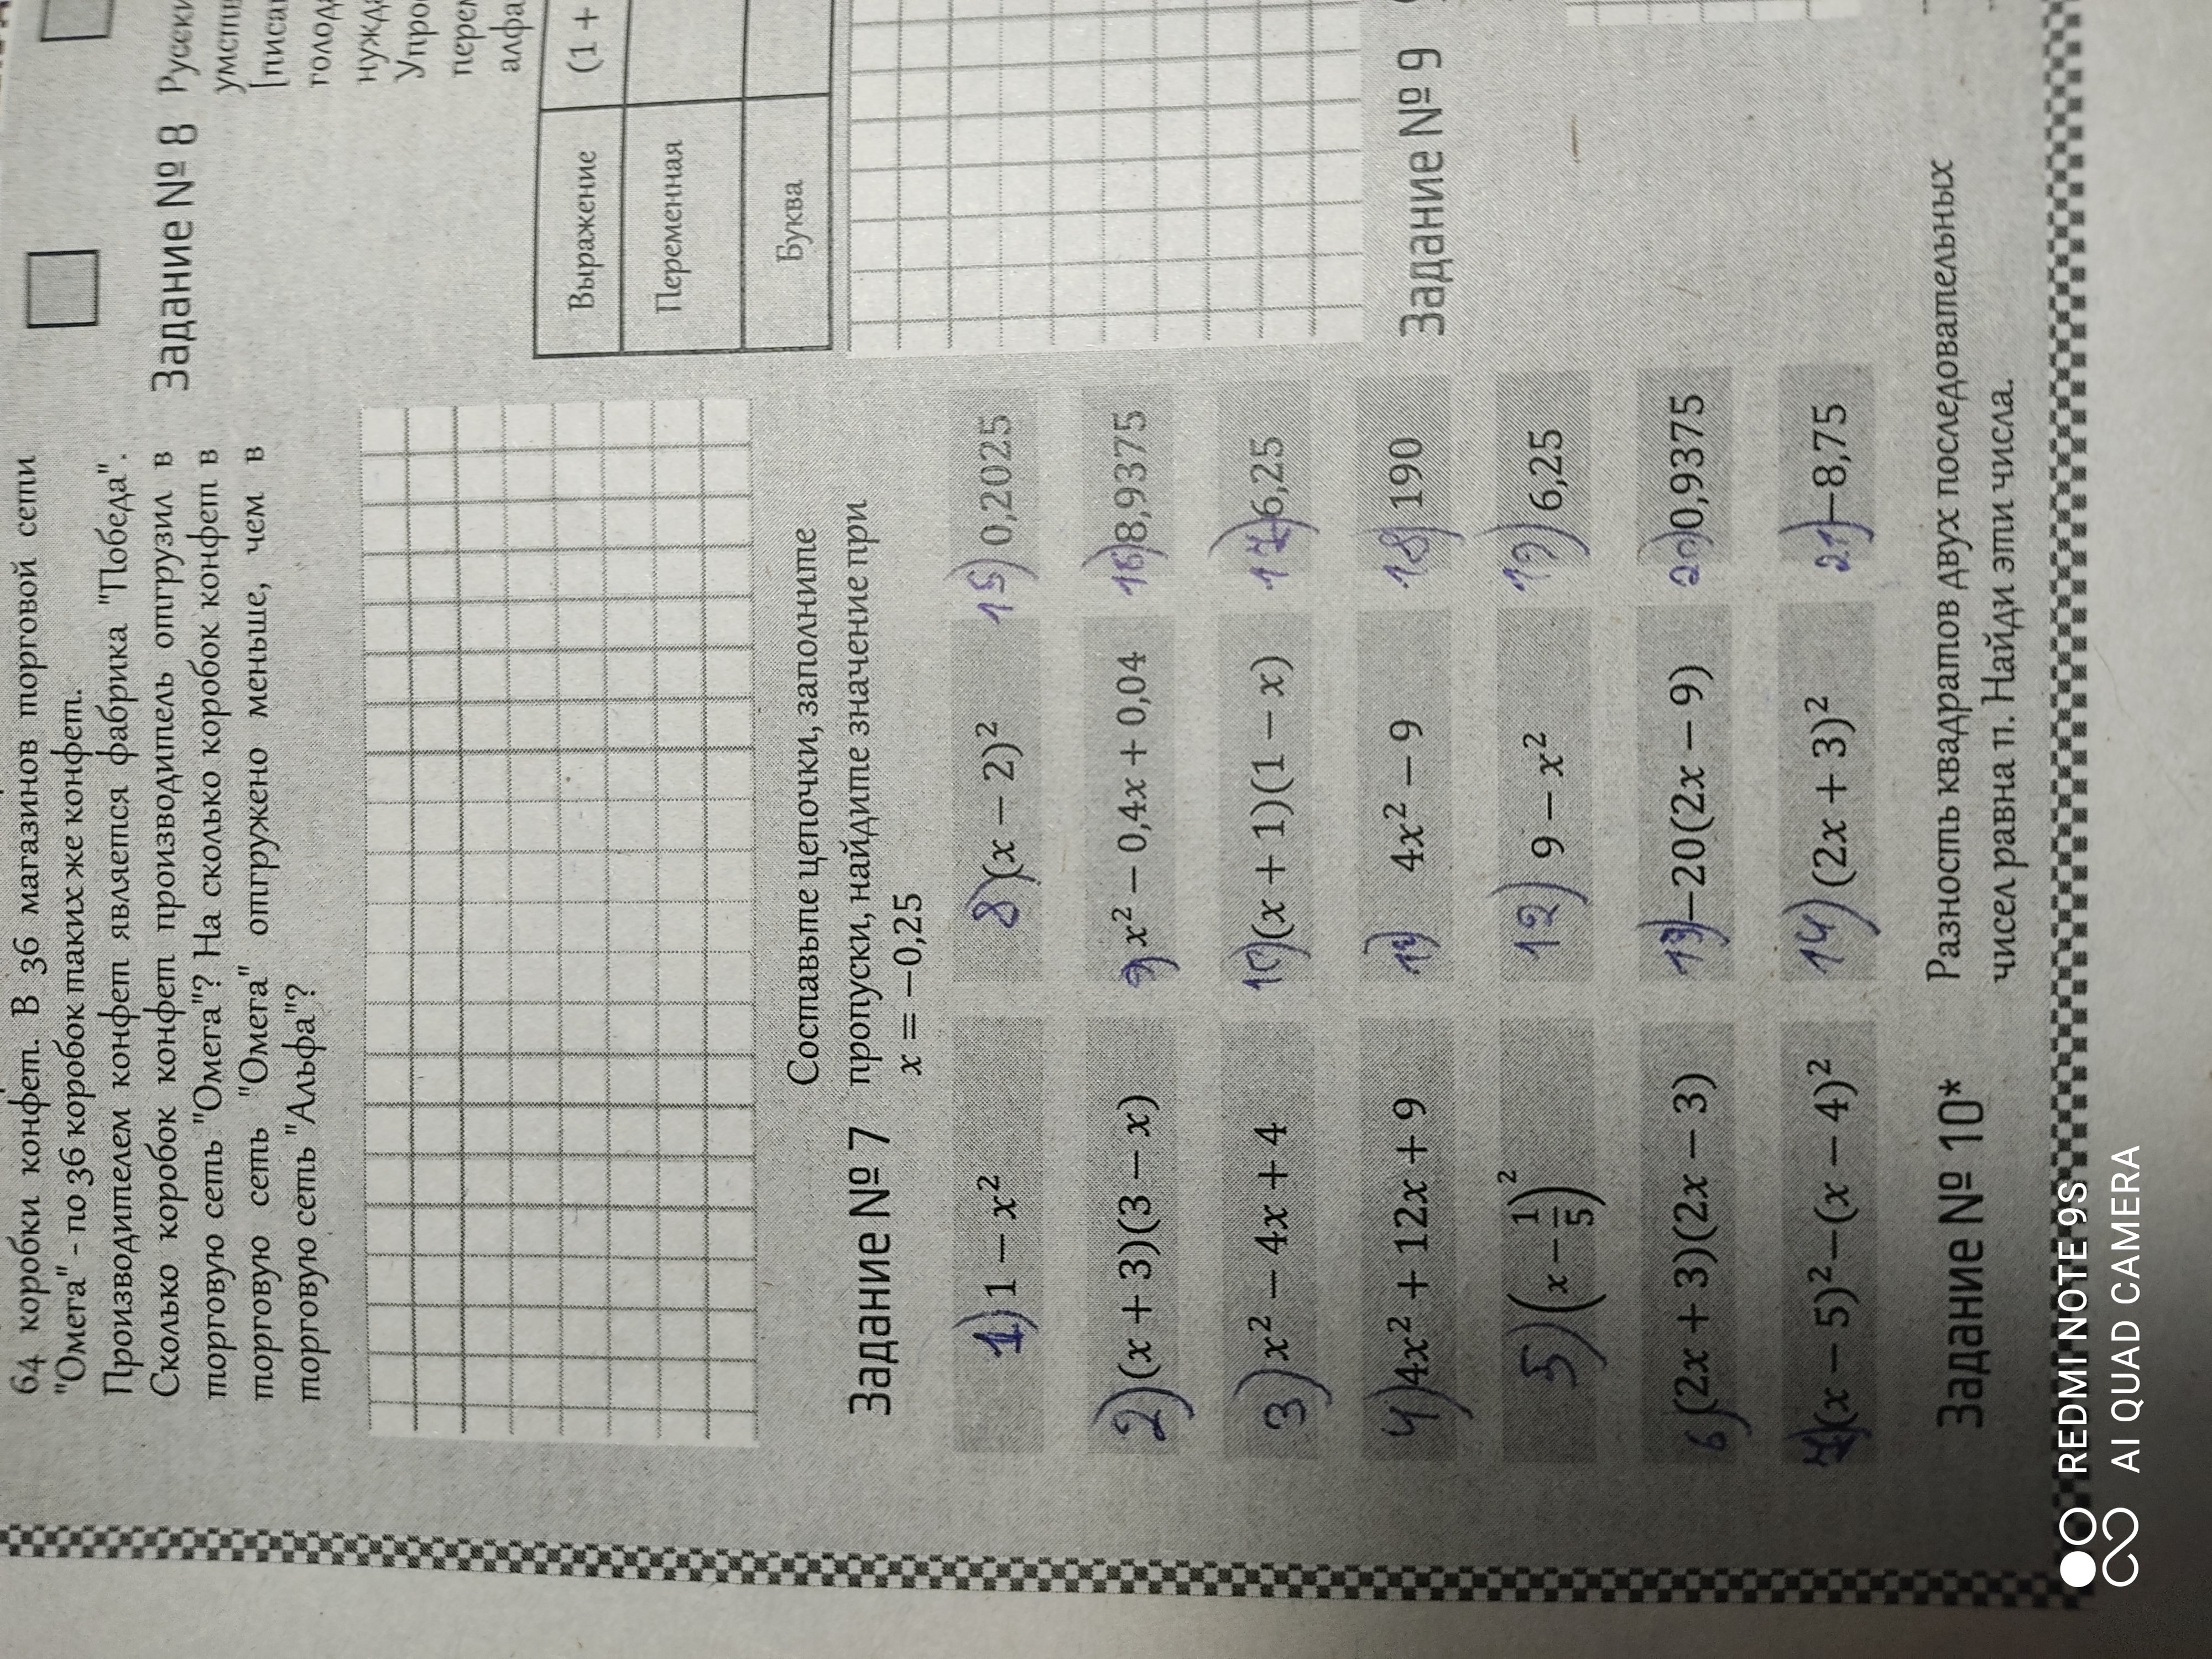 64 коробки конфет. В 36 магазинов торговой сети
"Омега" - по 36 коробок таких же конфет.
Производителем конфет является фабрика "Победа".
Сколько коробок конфет производитель отгрузил в
торговую сеть "Омега"? На сколько коробок конфет в
торговую сеть "Омега" отгружено меньше, чем в
торговую сеть "Альфа"?
Задание № 7 Составьте цепочки, заполните
пропуски, найдите значение при
x = −0,25
1) 1 − x² 8) (x − 2)² 15) 0,2025
2) (x + 3)(3 − x) 9) x² − 0,4x + 0,04 16) 8,9375
3) x² − 4x + 4 10) (x + 1)(1 − x) 17) 6,25
4) 4x² + 12x + 9 11) 4x² − 9 18) 190
5) (x − 1/5)² 12) 9 − x² 19) 6,25
6) (2x + 3)(2x − 3) 13) −20(2x − 9) 20) 0,9375
7) (x − 5)²−(x − 4)² 14) (2x + 3)² 21) −8,75
Задание № 10* Разность квадратов двух последовательных
чисел равна 11. Найди эти числа.
Задание № 8
Выражение (1 +
Переменная
Буква
Задание № 9
REDMI NOTE 9S
AI QUAD CAMERA